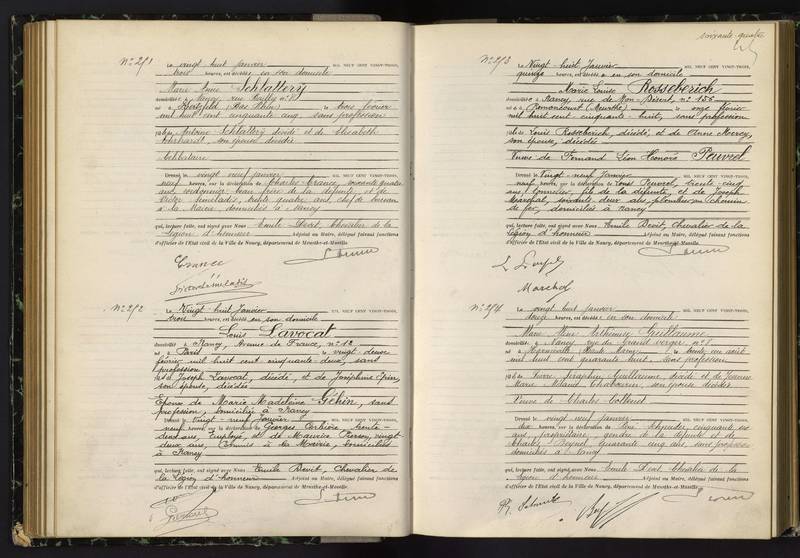 soixante-quatre
N° 251
Le vingt huit janvier MIL NEUF CENT VINGT-TROIS,
trois heures, est décédé en son domicile
Marie Anne Schlattery
domiciliée à Nancy, rue
né à (Bas Rhin) le trois février
mil huit cent cinquante cinq, sans profession
fille de Antoine Schlattery décédé et de Elisabeth
Ehrhardt, son épouse décédée
Célibataire
Dressé le vingt neuf janvier MIL NEUF CENT VINGT-TROIS,
neuf heures, sur la déclaration de Charles France, soixante quatre
ans, beau frère de la défunte, et de
Victor trente quatre ans, chef de bureau
à la Mairie, domiciliés à Nancy
qui, lecture faite, ont signé avec Nous Emile Devit, Chevalier de la
Légion d'honneur Adjoint au Maire, délégué faisant fonctions
d'officier de l'État civil de la Ville de Nancy, département de Meurthe-et-Moselle.
France
N° 252
Le Vingt huit Janvier MIL NEUF CENT VINGT-TROIS,
trois heures, est décédé en son domicile
Louis Lavocat
domicilié à Nancy, Avenue de France, n° 12
né à Paris le vingt-deux
février mil huit cent cinquante-deux, sans
profession
fils de Joseph Lavocat, décédé, et de Joséphine
son épouse, décédée
Epoux de Marie Madeleine Géhin, sans
profession, domiciliée à Nancy
Dressé le Vingt-neuf Janvier MIL NEUF CENT VINGT-TROIS,
neuf heures, sur la déclaration de Georges Cerbière, trente-
deux ans, Employé, et de Maurice Pierson, vingt-
deux ans, Commis à la Mairie, domiciliés
à Nancy
qui, lecture faite, ont signé avec Nous Emile Devit, Chevalier de
la Légion d'honneur Adjoint au Maire, délégué faisant fonctions
d'officier de l'État civil de la Ville de Nancy, département de Meurthe-et-Moselle.
N° 253
Le Vingt-huit Janvier MIL NEUF CENT VINGT-TROIS,
quinze heures, est décédée en son domicile
Marie Louise Rosseberich
domiciliée à Nancy, rue de Mon-Désert, n° 155
née à Remoncourt (Meurthe) le onze février
mil huit cent cinquante-huit, sans profession
fille de Louis Rosseberich, décédé, et de Anne
son épouse, décédée
Veuve de Fernand Léon Honoré Peuvrel
Dressé le Vingt-neuf Janvier MIL NEUF CENT VINGT-TROIS,
neuf heures, sur la déclaration de Louis Peuvrel, trente-cinq
ans, fils de la défunte, et de Joseph
Marchal, soixante-deux ans, au chemin
de fer, domiciliés à Nancy
qui, lecture faite, ont signé avec Nous Emile Devit, Chevalier de la
Légion d'honneur Adjoint au Maire, délégué faisant fonctions
d'officier de l'État civil de la Ville de Nancy, département de Meurthe-et-Moselle.
Marchal
N° 254
Le vingt huit janvier MIL NEUF CENT VINGT-TROIS,
douze heures, est décédée en son domicile
Marie Guillaume
domiciliée à Nancy, rue du Grand Verger n° 8
née à le trente un août
mil huit cent quarante huit, sans profession
fille de Pierre Guillaume décédé et de Jeanne
Marie son épouse décédée
Veuve de Charles
Dressé le vingt neuf janvier MIL NEUF CENT VINGT-TROIS,
dix heures, sur la déclaration de René cinquante six
ans, propriétaire, gendre de la défunte et de
Charles quarante cinq ans, sans profession
domiciliés à Nancy
qui, lecture faite, ont signé avec Nous Emile Devit Chevalier de la
Légion d'honneur Adjoint au Maire, délégué faisant fonctions
d'officier de l'État civil de la Ville de Nancy, département de Meurthe-et-Moselle.